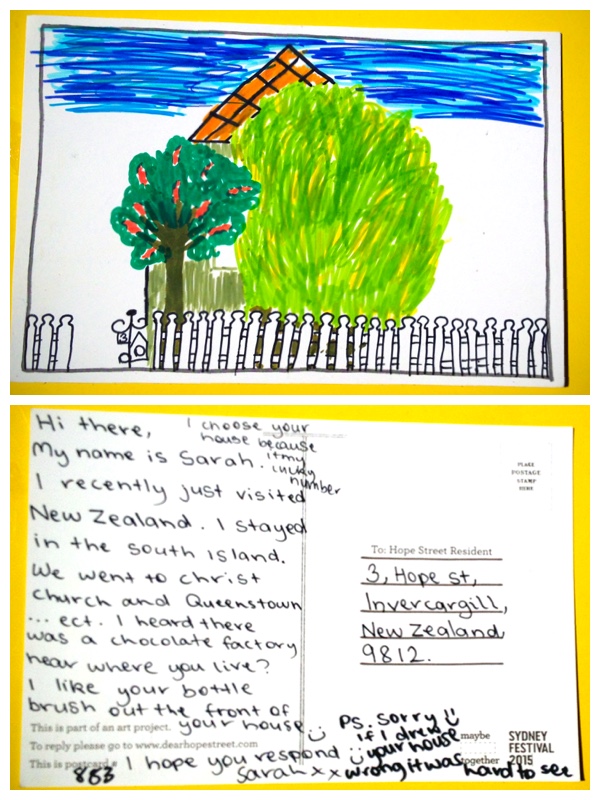 Hi there,
I choose your
house because
it my
lucky
number
My name is Sarah.
I recently just visited
New Zealand. I stayed
in the south Island.
We went to christ
church and Queenstown
... ect. I heard there
was a chocolate factory
near where you live?
I like your bottle
brush out the front of
your house
I hope you respond
Sarah x x
Ps. sorry
if I drew
your house
wrong it was hard to see
This is part of an art project.
To reply please go to www.dearhopestreet.com
This is postcard #
883
PLACE
POSTAGE
STAMP
HERE
To: Hope Street Resident
3, Hope st,
Invercargill,
New Zealand
9812.
maybe
together
SYDNEY
FESTIVAL
2015